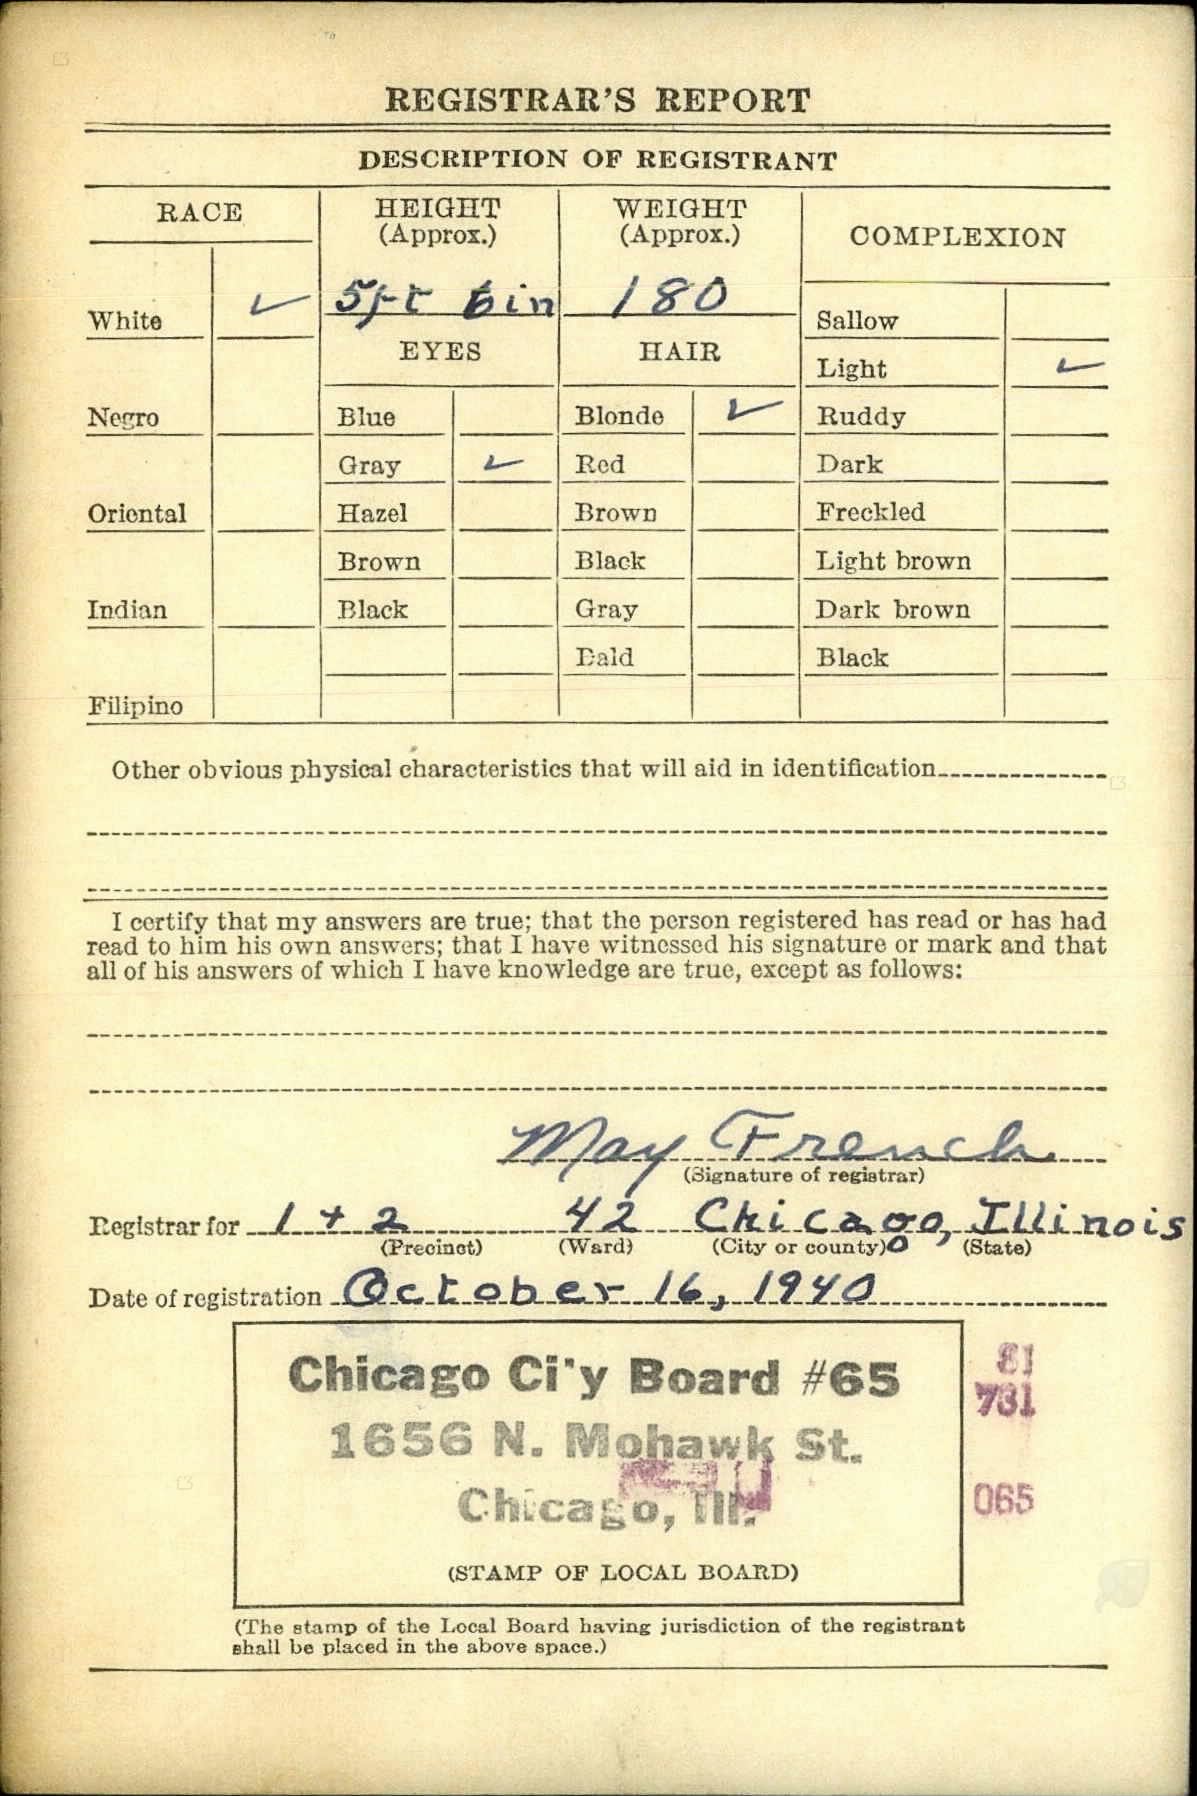 REGISTRAR'S REPORT
DESCRIPTION OF REGISTRANT
RACE
HEIGHT
(Approx.)
WEIGHT
(Approx.)
COMPLEXION
White ✓
5ft 6in
180
Sallow
EYES
HAIR
Light ✓
Negro
Blue
Blonde ✓
Ruddy
Gray ✓
Red
Dark
Oriental
Hazel
Brown
Freckled
Brown
Black
Light brown
Indian
Black
Gray
Dark brown
Bald
Black
Filipino
Other obvious physical characteristics that will aid in identification
I certify that my answers are true; that the person registered has read or has had
read to him his own answers; that I have witnessed his signature or mark and that
all of his answers of which I have knowledge are true, except as follows:
May French
(Signature of registrar)
Registrar for 1 + 2 42 Chicago, Illinois
(Precinct) (Ward) (City or county) (State)
Date of registration October 16, 1940
Chicago Ci'y Board #65
1656 N. Mohawk St.
Chicago, Ill.
81
731
065
(STAMP OF LOCAL BOARD)
(The stamp of the Local Board having jurisdiction of the registrant
shall be placed in the above space.)